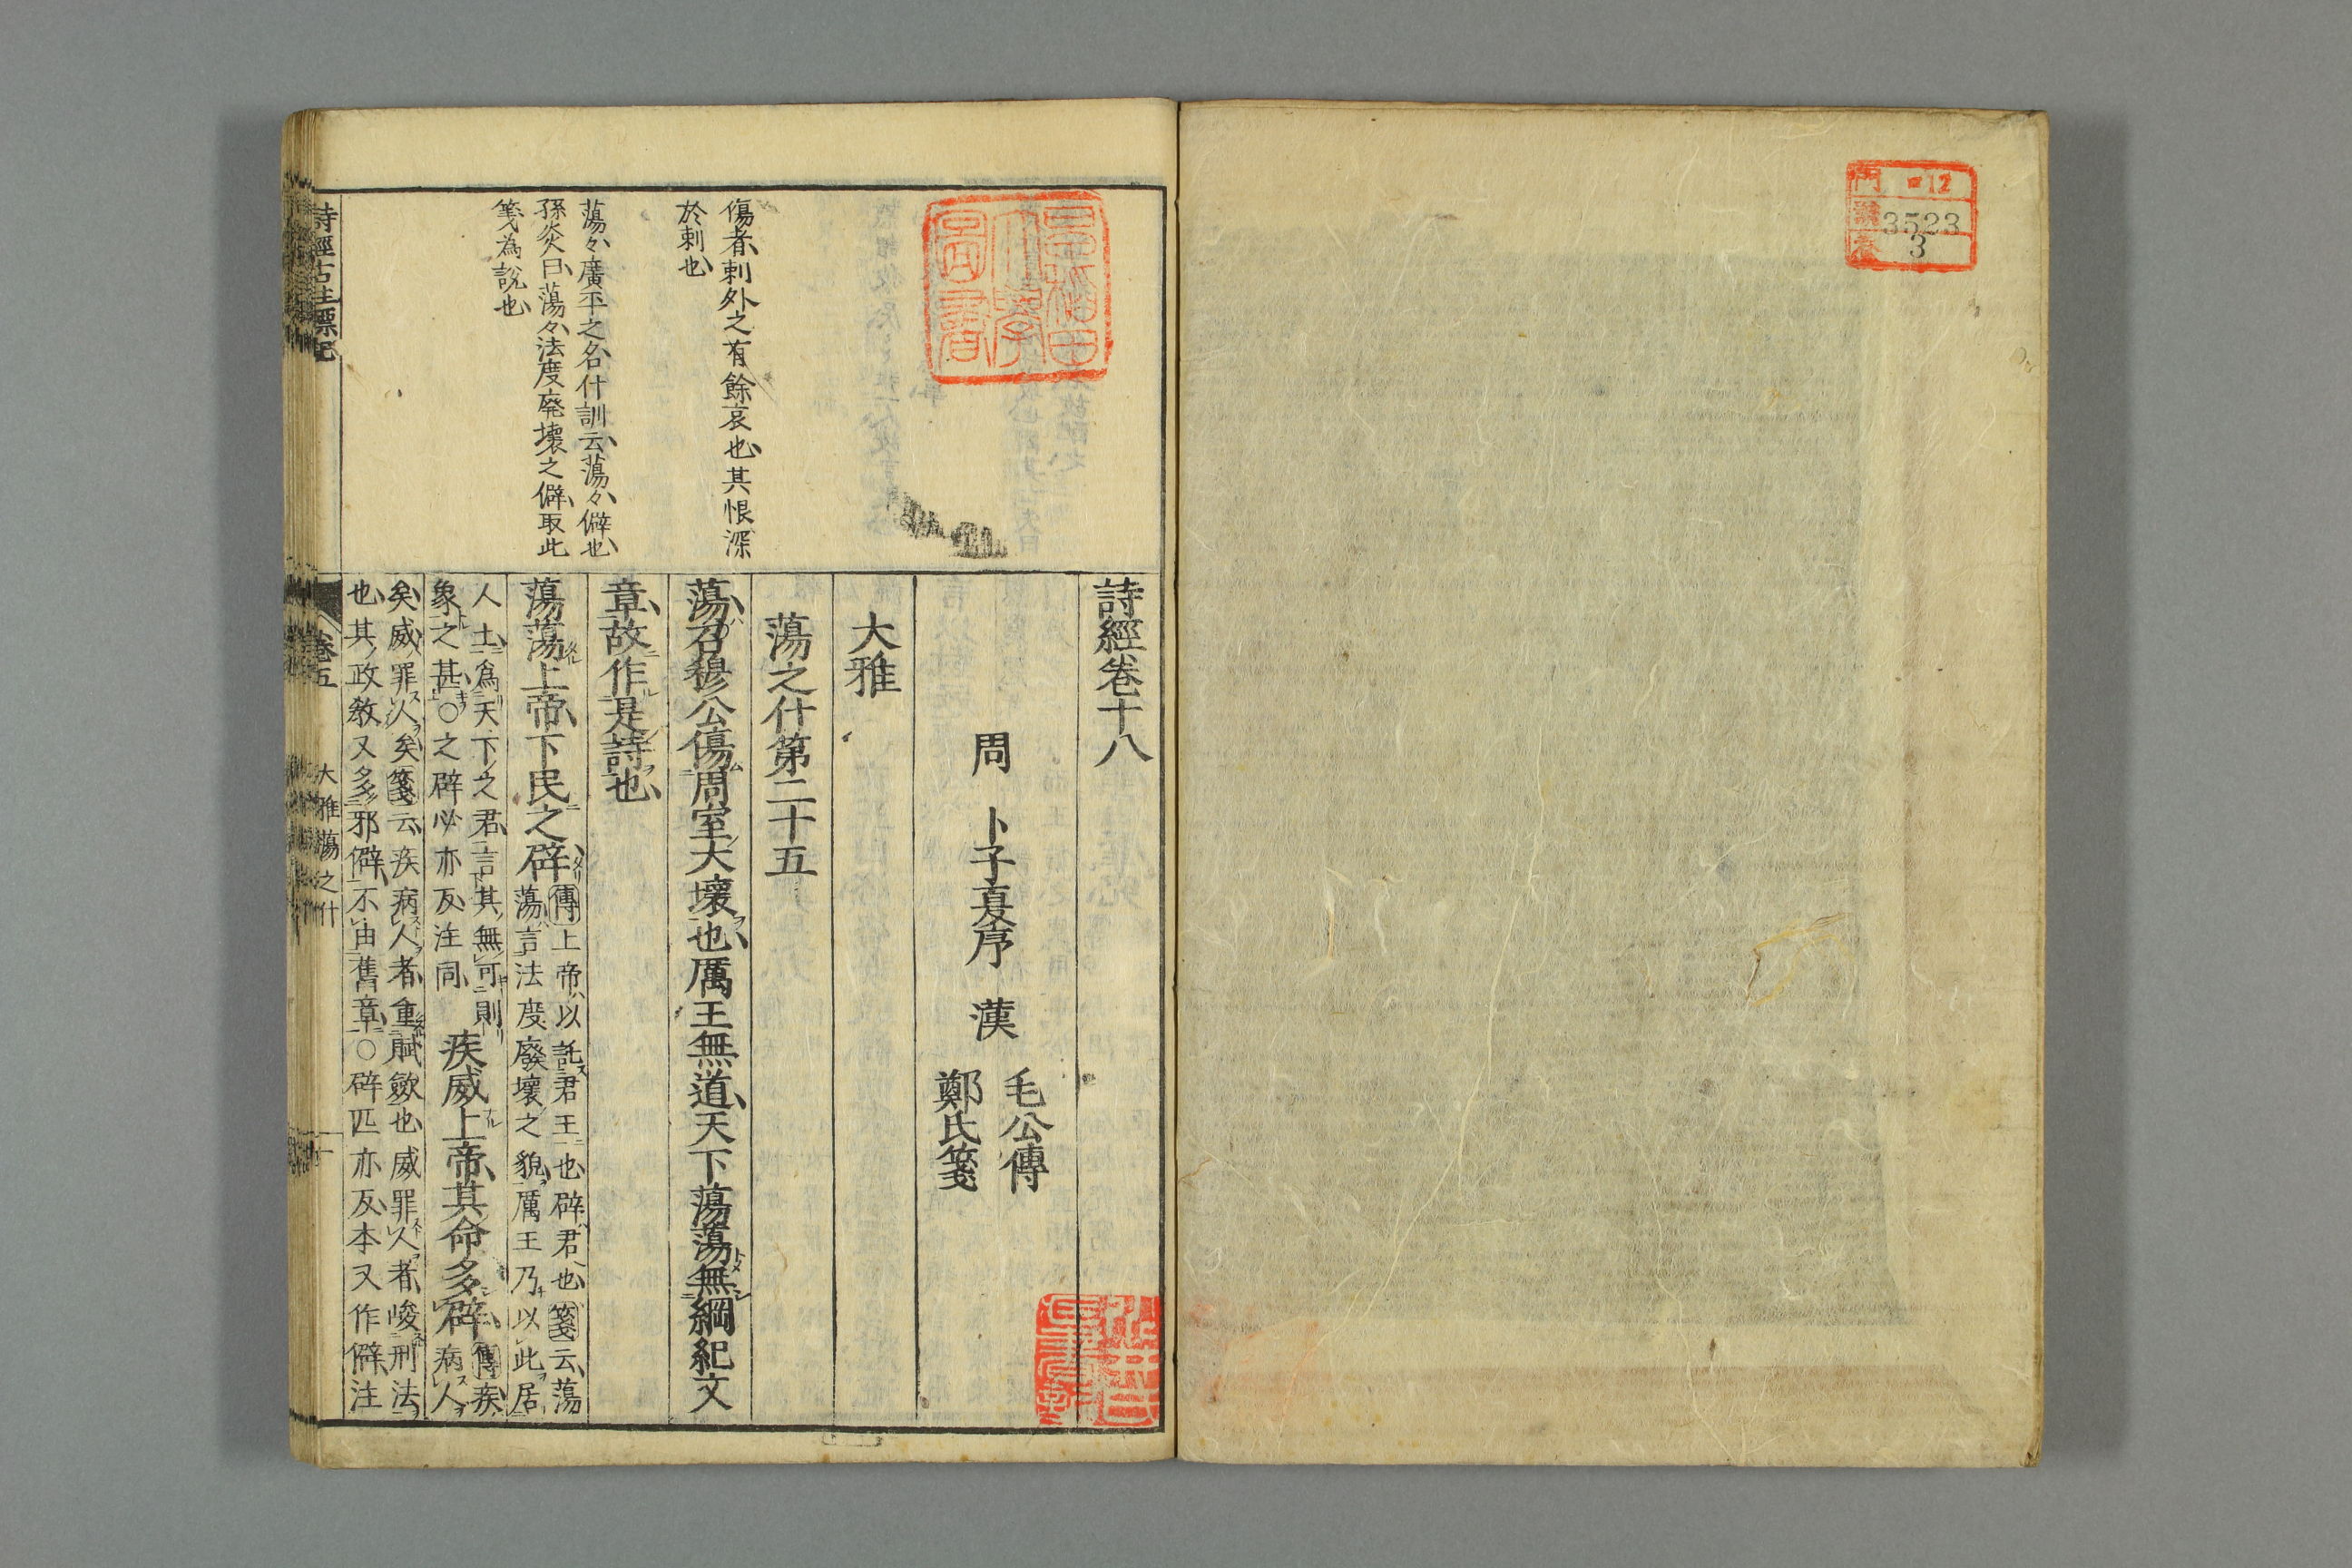 門 口12
號 3523
卷 3
早稲田
大學
圖書
傷者刺外之有餘哀也其恨深
於刺也
蕩々廣平之名什訓云蕩々僻也
孫炎曰蕩々法度廃壊之僻取此
箋為說也
詩經卷十八
周 卜子夏序 漢 毛公傳
鄭氏箋
大雅
蕩之什第二十五
蕩召穆公傷周室大壞也厲王無道天下蕩蕩無綱紀文
章故作是詩也
蕩蕩上帝下民之辟 傳上帝以託君王也辟君也箋云蕩
蕩言法度廢壞之貌厲王乃以此居
人上為天下之君言其無可則
象之甚○之辟必亦反注同
疾威上帝其命多辟 傳疾病人
矣威罪人矣箋云疾病人者重賦斂也威罪人者峻刑法
也其政教又多邪僻不由舊章○辟匹亦反本又作僻注
詩經古註標記
卷五
大雅蕩之什
一